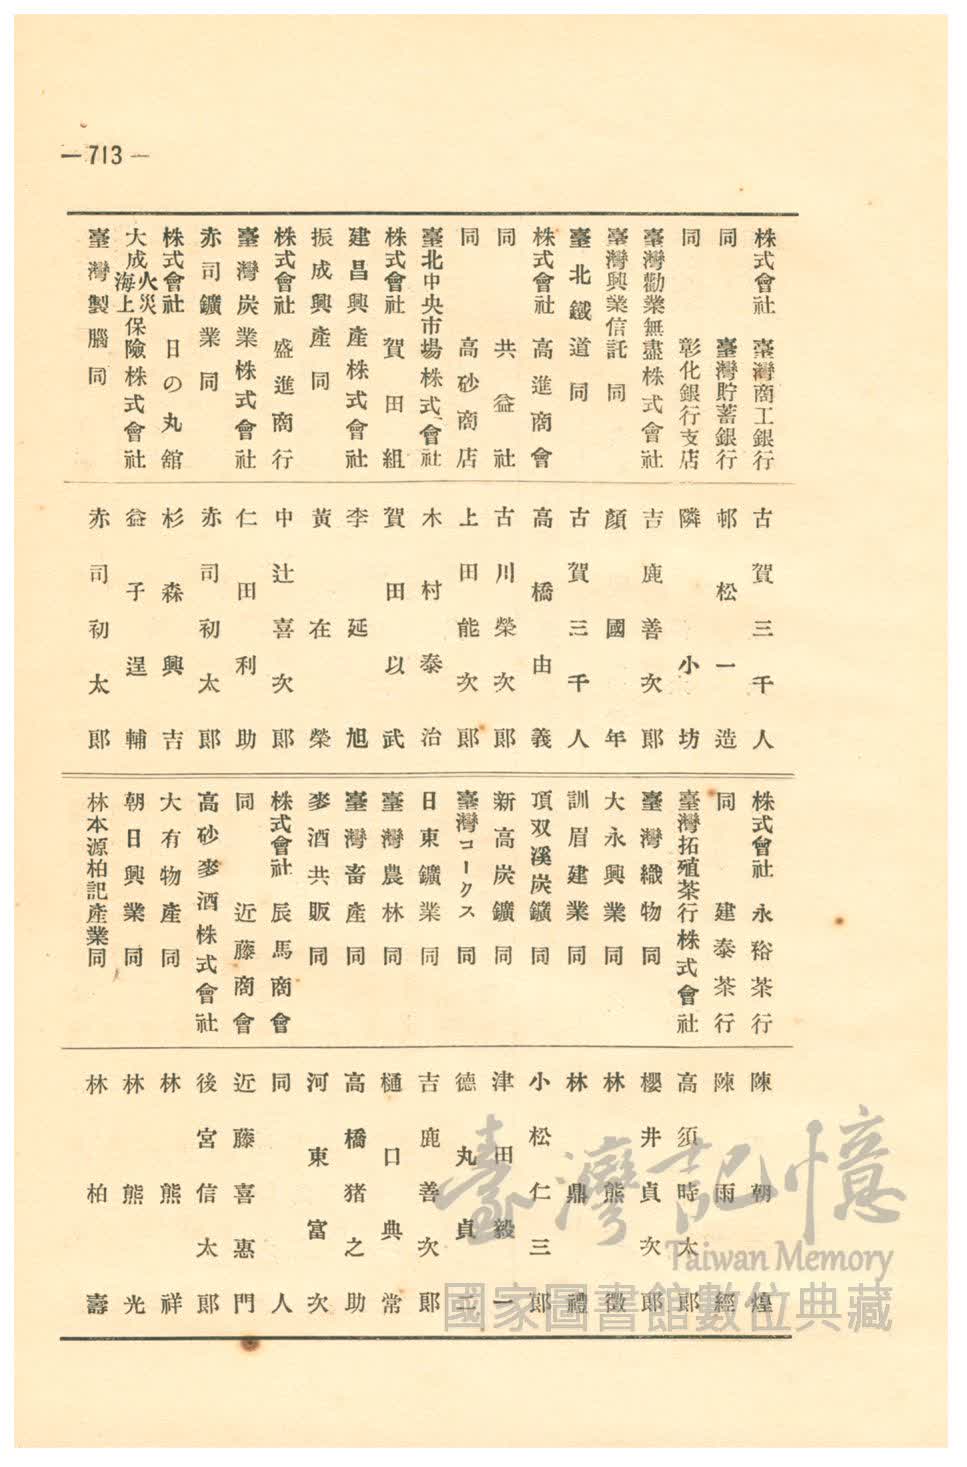 —713—
株式會社 臺灣商工銀行 古賀三千人
同 臺灣貯蓄銀行 邨松一造
同 彰化銀行支店 隣小坊
臺灣勸業無盡株式會社 吉鹿善次郎
臺灣興業信託同 顏國年
臺北鐵道同 古賀三千人
株式會社 高進商會 高橋由義
同 共益社 古川榮次郎
同 高砂商店 上田能次郎
臺北中央市場株式會社 木村泰治
株式會社 賀田組 賀田以武
建昌興產株式會社 李延旭
振成興產同 黃在榮
株式會社 盛進商行 中辻喜次郎
臺灣炭業株式會社 仁田利助
赤司鑛業同 赤司初太郎
株式會社 日の丸舘 杉森興吉
大成火災海上保險株式會社 益子逞輔
臺灣製腦同 赤司初太郎
株式會社 永裕茶行 陳朝煌
同 建泰茶行 陳雨經
臺灣拓殖茶行株式會社 高須時太郎
臺灣織物同 櫻井貞次郎
大永興業同 林熊徵
訓眉建業同 林鼎禮
頂双溪炭鑛同 小松仁三郎
新高炭鑛同 津田毅一
臺灣コークス同 德丸貞二
日東鑛業同 吉鹿善次郎
臺灣農林同 樋口典常
臺灣畜產同 高橋猪之助
麥酒共販同 河東富次
株式會社 辰馬商會 同人
同 近藤商會 近藤喜惠門
高砂麥酒株式會社 後宮信太郎
大有物產同 林熊祥
朝日興業同 林熊光
林本源柏記產業同 林柏壽
臺灣記憶
Taiwan Memory
國家圖書館數位典藏